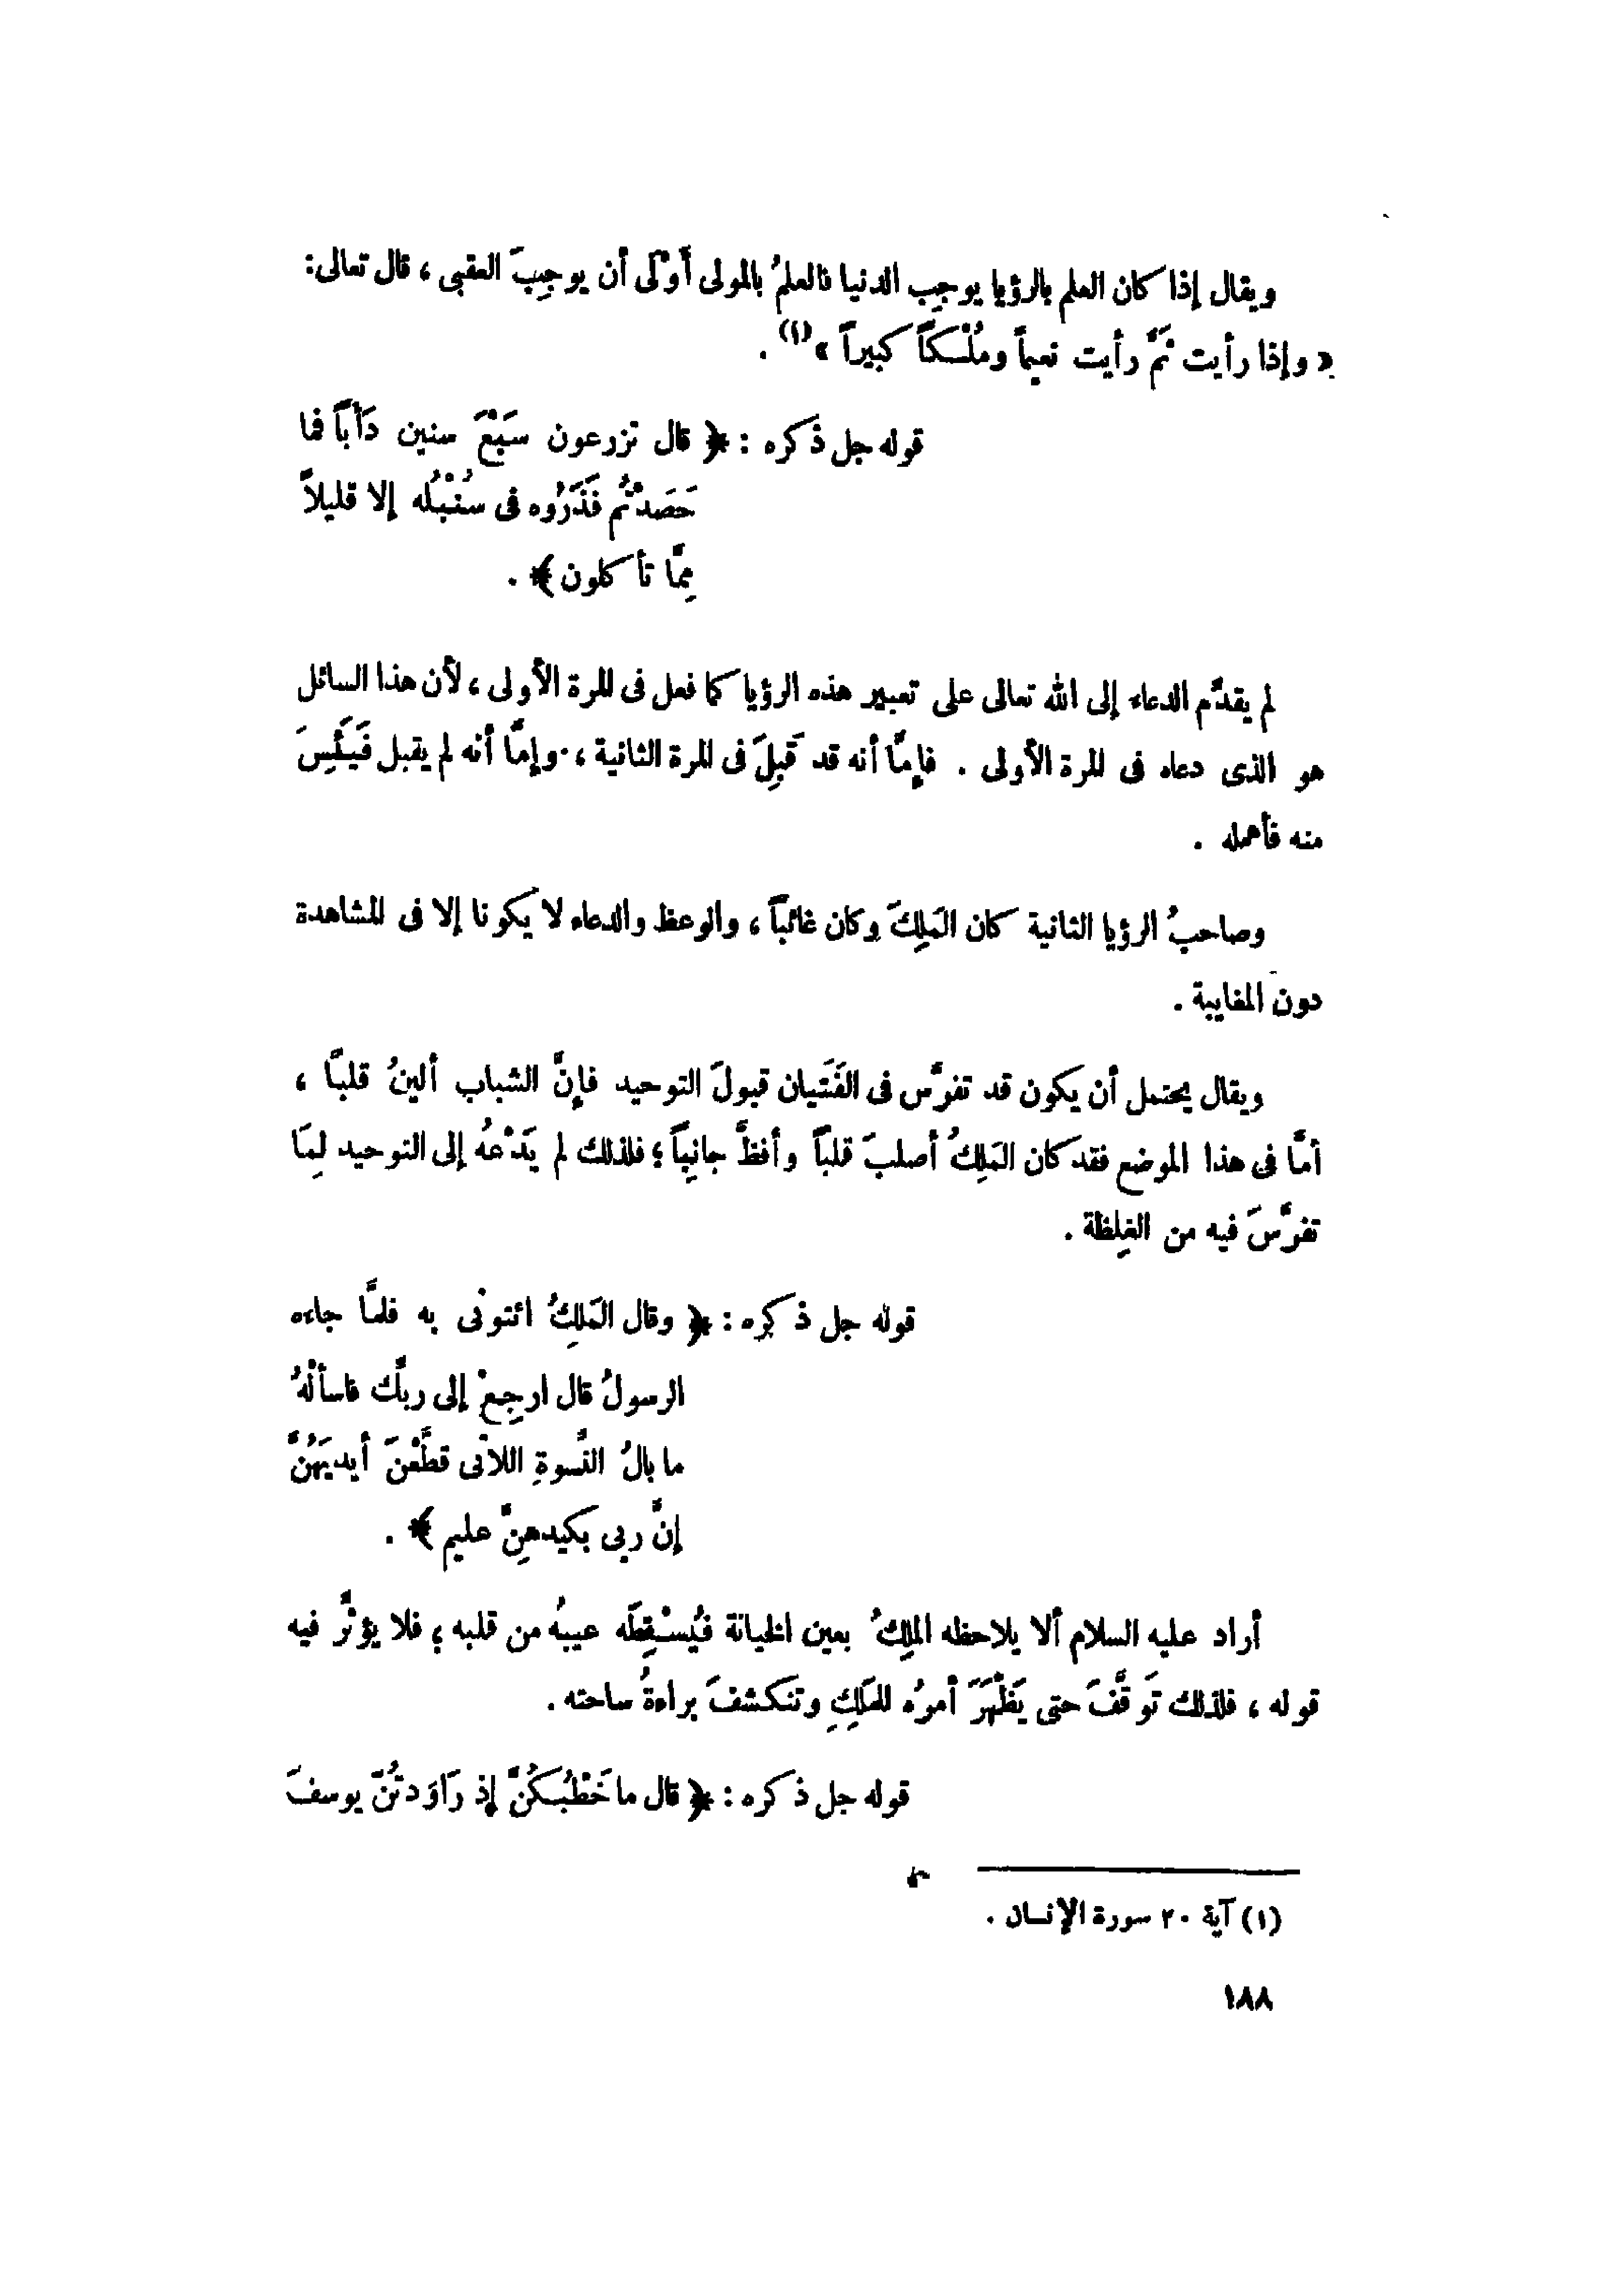 ويقال إذا كان العلم بالرؤيا يوجِب الدنيا فالعلمُ بالمولى أَوْلَى أن يوجِبَ العقبى ، قال تعالى:
« وإذا رأيت ثَمَّ رأيت نعيماً ومُلْكاً كبيراً »(١) .
قوله جل ذكره : ﴿ قال تزرعون سَبْعَ سنين دَأَباً فما
حَصَدْتُم فَذَرُوه فى سُنْبُلُه إلا قليلاً
مِمَّا تأكلون ﴾ .
لم يقدِّم الدعاء إلى الله تعالى على تعبير هذه الرؤيا كما فعل فى المرة الأولى ، لأن هذا السائل
هو الذى دعاه فى المرة الأولى . فإمَّا أنه قد قَبِلَ فى المرة الثانية ، وإمَّا أنه لم يقبل فَيَئِسَ
منه فأهمله .
وصاحبُ الرؤيا الثانية كان المَلِكَ وكان غائباً ، والوعظ والدعاء لا يكونا إلا فى المشاهدة
دون المغايبة .
ويقال يحتمل أن يكون قد تفرَّس فى الفَتَيان قبولَ التوحيد فإنَّ الشباب ألينُ قلباً ،
أمَّا فى هذا الموضع فقد كان المَلِكُ أصلبَ قلباً وأفظَّ جانِباً ؛ فلذلك لم يَدْعهُ إلى التوحيد لِمَا
تفرَّسَ فيه من الغِلظة .
قوله جل ذكره : ﴿ وقال المَلِكُ ائتونى به فلمَّا جاءه
الرسولُ قال ارجِعْ إلى ربِّك فاسألْهُ
ما بالُ النِّسوةِ اللاتى قطَّعْنَ أيديَهُنَّ
إنَّ ربى بكيدهنَّ عليم ﴾ .
أراد عليه السلام ألا يلاحظه الملِكُ بعين الخيانة فيُسْقِطَه عيبُه من قلبه ؛ فلا يؤثِّر فيه
قوله ، فلذلك تَوقَّفَ حتى يَظْهَرَ أمرُه للمَلِكِ وتنكشفَ براءةُ ساحته .
قوله جل ذكره : ﴿ قال ما خَطْبُكُنَّ إذ رَاوَدتُنَّ يوسفَ
(١) آية ٢٠ سورة الإنسان .
١٨٨